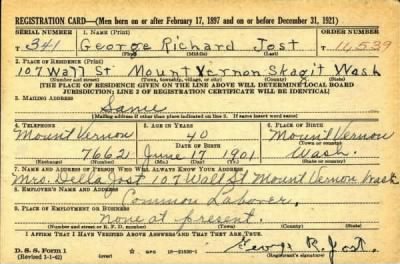 REGISTRATION CARD—(Men born on or after February 17, 1897 and on or before December 31, 1921)
SERIAL NUMBER 1. NAME (Print) ORDER NUMBER
T 341 George Richard Jost T 11,539
(First) (Middle) (Last)
2. PLACE OF RESIDENCE (Print)
107 Wall St. Mount Vernon Skagit Wash
(Number and street) (Town, township, village, or city) (County) (State)
[THE PLACE OF RESIDENCE GIVEN ON THE LINE ABOVE WILL DETERMINE LOCAL BOARD
JURISDICTION; LINE 2 OF REGISTRATION CERTIFICATE WILL BE IDENTICAL]
3. MAILING ADDRESS
Same
[Mailing address if other than place indicated on line 2. If same insert word same]
4. TELEPHONE 5. AGE IN YEARS 6. PLACE OF BIRTH
Mount Vernon 40 Mount Vernon
DATE OF BIRTH (Town or county)
7662 June 17 1901 Wash.
(Exchange) (Number) (Mo.) (Day) (Yr.) (State or country)
7. NAME AND ADDRESS OF PERSON WHO WILL ALWAYS KNOW YOUR ADDRESS
Mrs. Della Jost 107 Wall St Mount Vernon Wash
8. EMPLOYER'S NAME AND ADDRESS
Common Laborer.
9. PLACE OF EMPLOYMENT OR BUSINESS
None at present.
(Number and street or R. F. D. number) (Town) (County) (State)
I AFFIRM THAT I HAVE VERIFIED ABOVE ANSWERS AND THAT THEY ARE TRUE.
D. S. S. Form 1
(Revised 1-1-42) GPO 16—21630-1 George R. Jost.
(Registrant's signature)